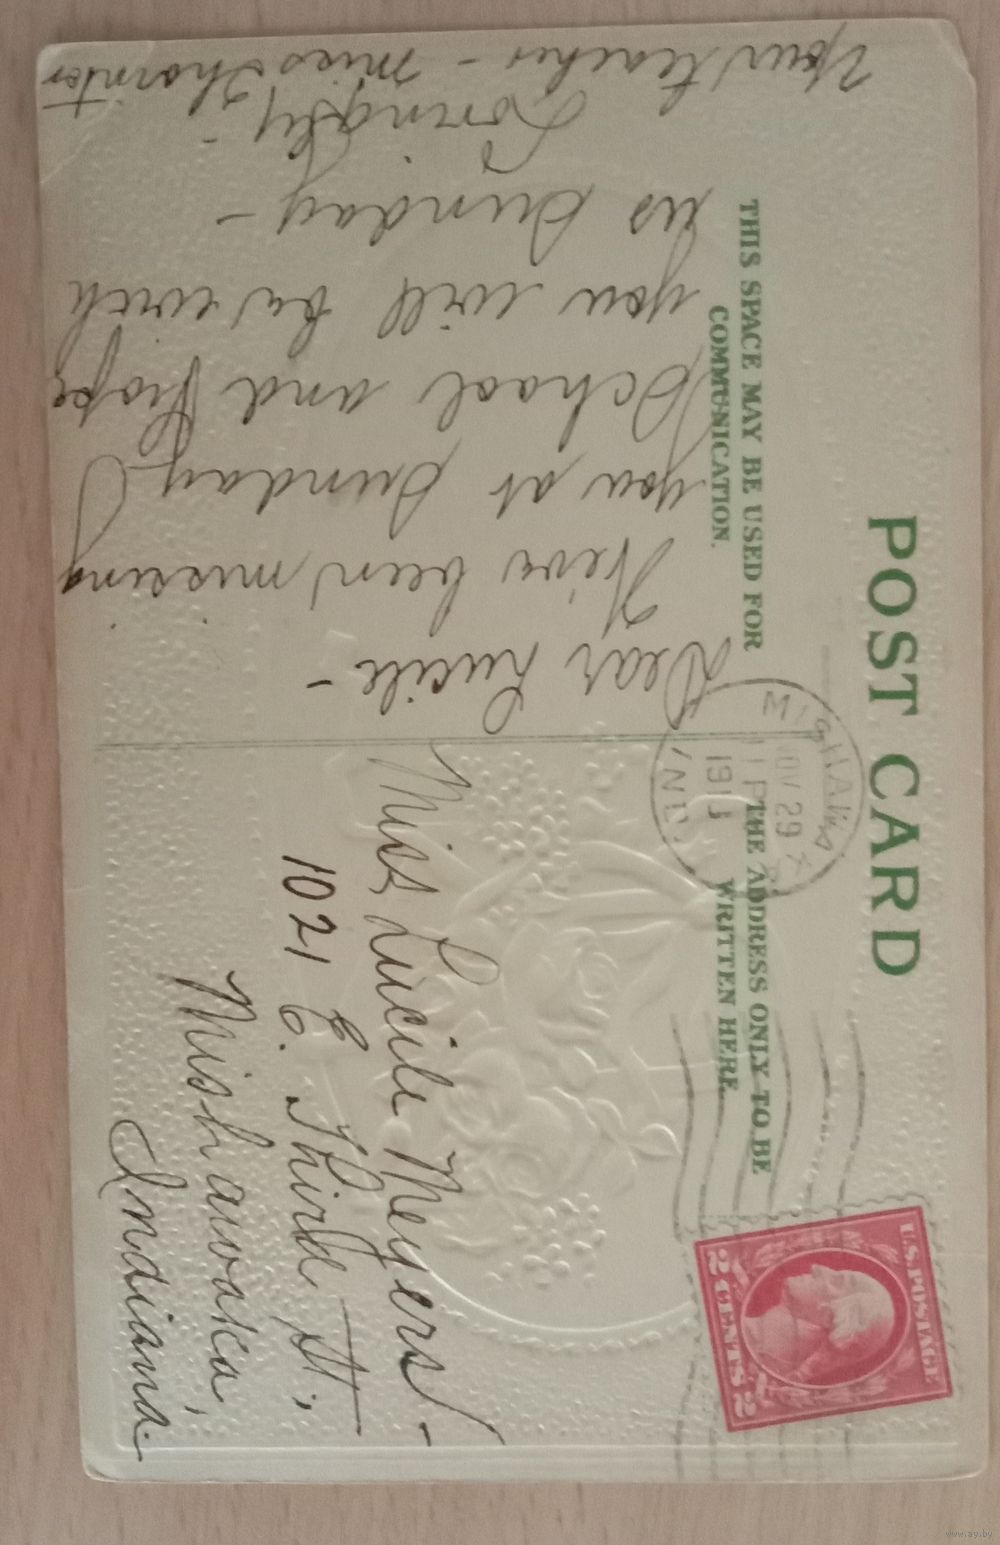 POST CARD
THIS SPACE MAY BE USED FOR
COMMUNICATION.
THE ADDRESS ONLY TO BE
WRITTEN HERE.
MISHAWAKA
NOV 29
1 P
191
IND.
U.S. POSTAGE
2 CENTS 2
Dear Lucile -
Have been missing
you at Sunday
School and hope
you will be with
us Sunday -
Lovingly -
Your teacher - Miss Thornton
Miss Lucile Meyers -
1021 E. Third St.,
Mishawaka,
Indiana
www.ay.by